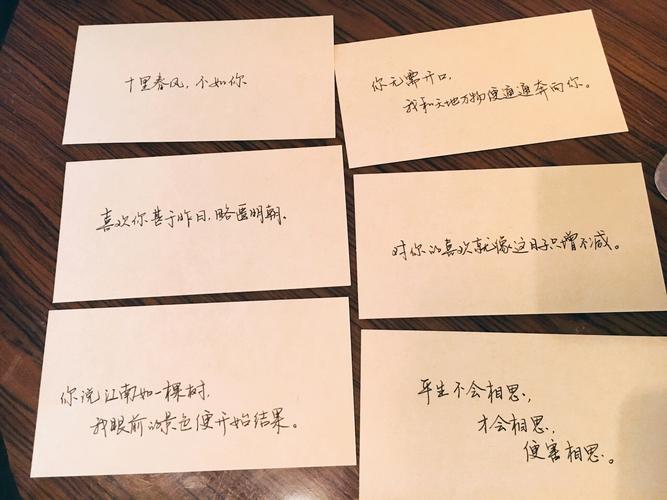 十里春风，不如你.
你无需开口，
我和天地万物便通通奔向你。
喜欢你甚于昨日，略匮明朝.
对你的喜欢就像这日子只增不减。
你说江南如一棵树，
我眼前的景色便开始结果。
平生不会相思，
才会相思，
便害相思。